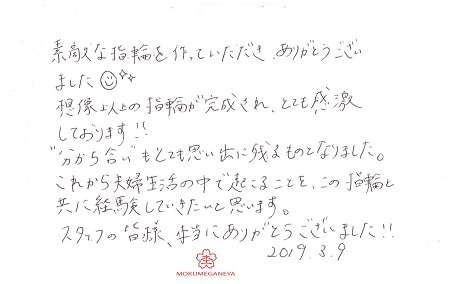 素敵な指輪を作っていただき、ありがとうござい
ました☺✨
想像以上の指輪が完成され、とても感激
しております!!
"分かち合い"もとても思い出に残るものとなりました。
これから夫婦生活の中で起こることを、この指輪と
共に経験していきたいと思います。
スタッフの皆様、本当にありがとうございました!!
2019.3.9
MOKUMEGANEYA